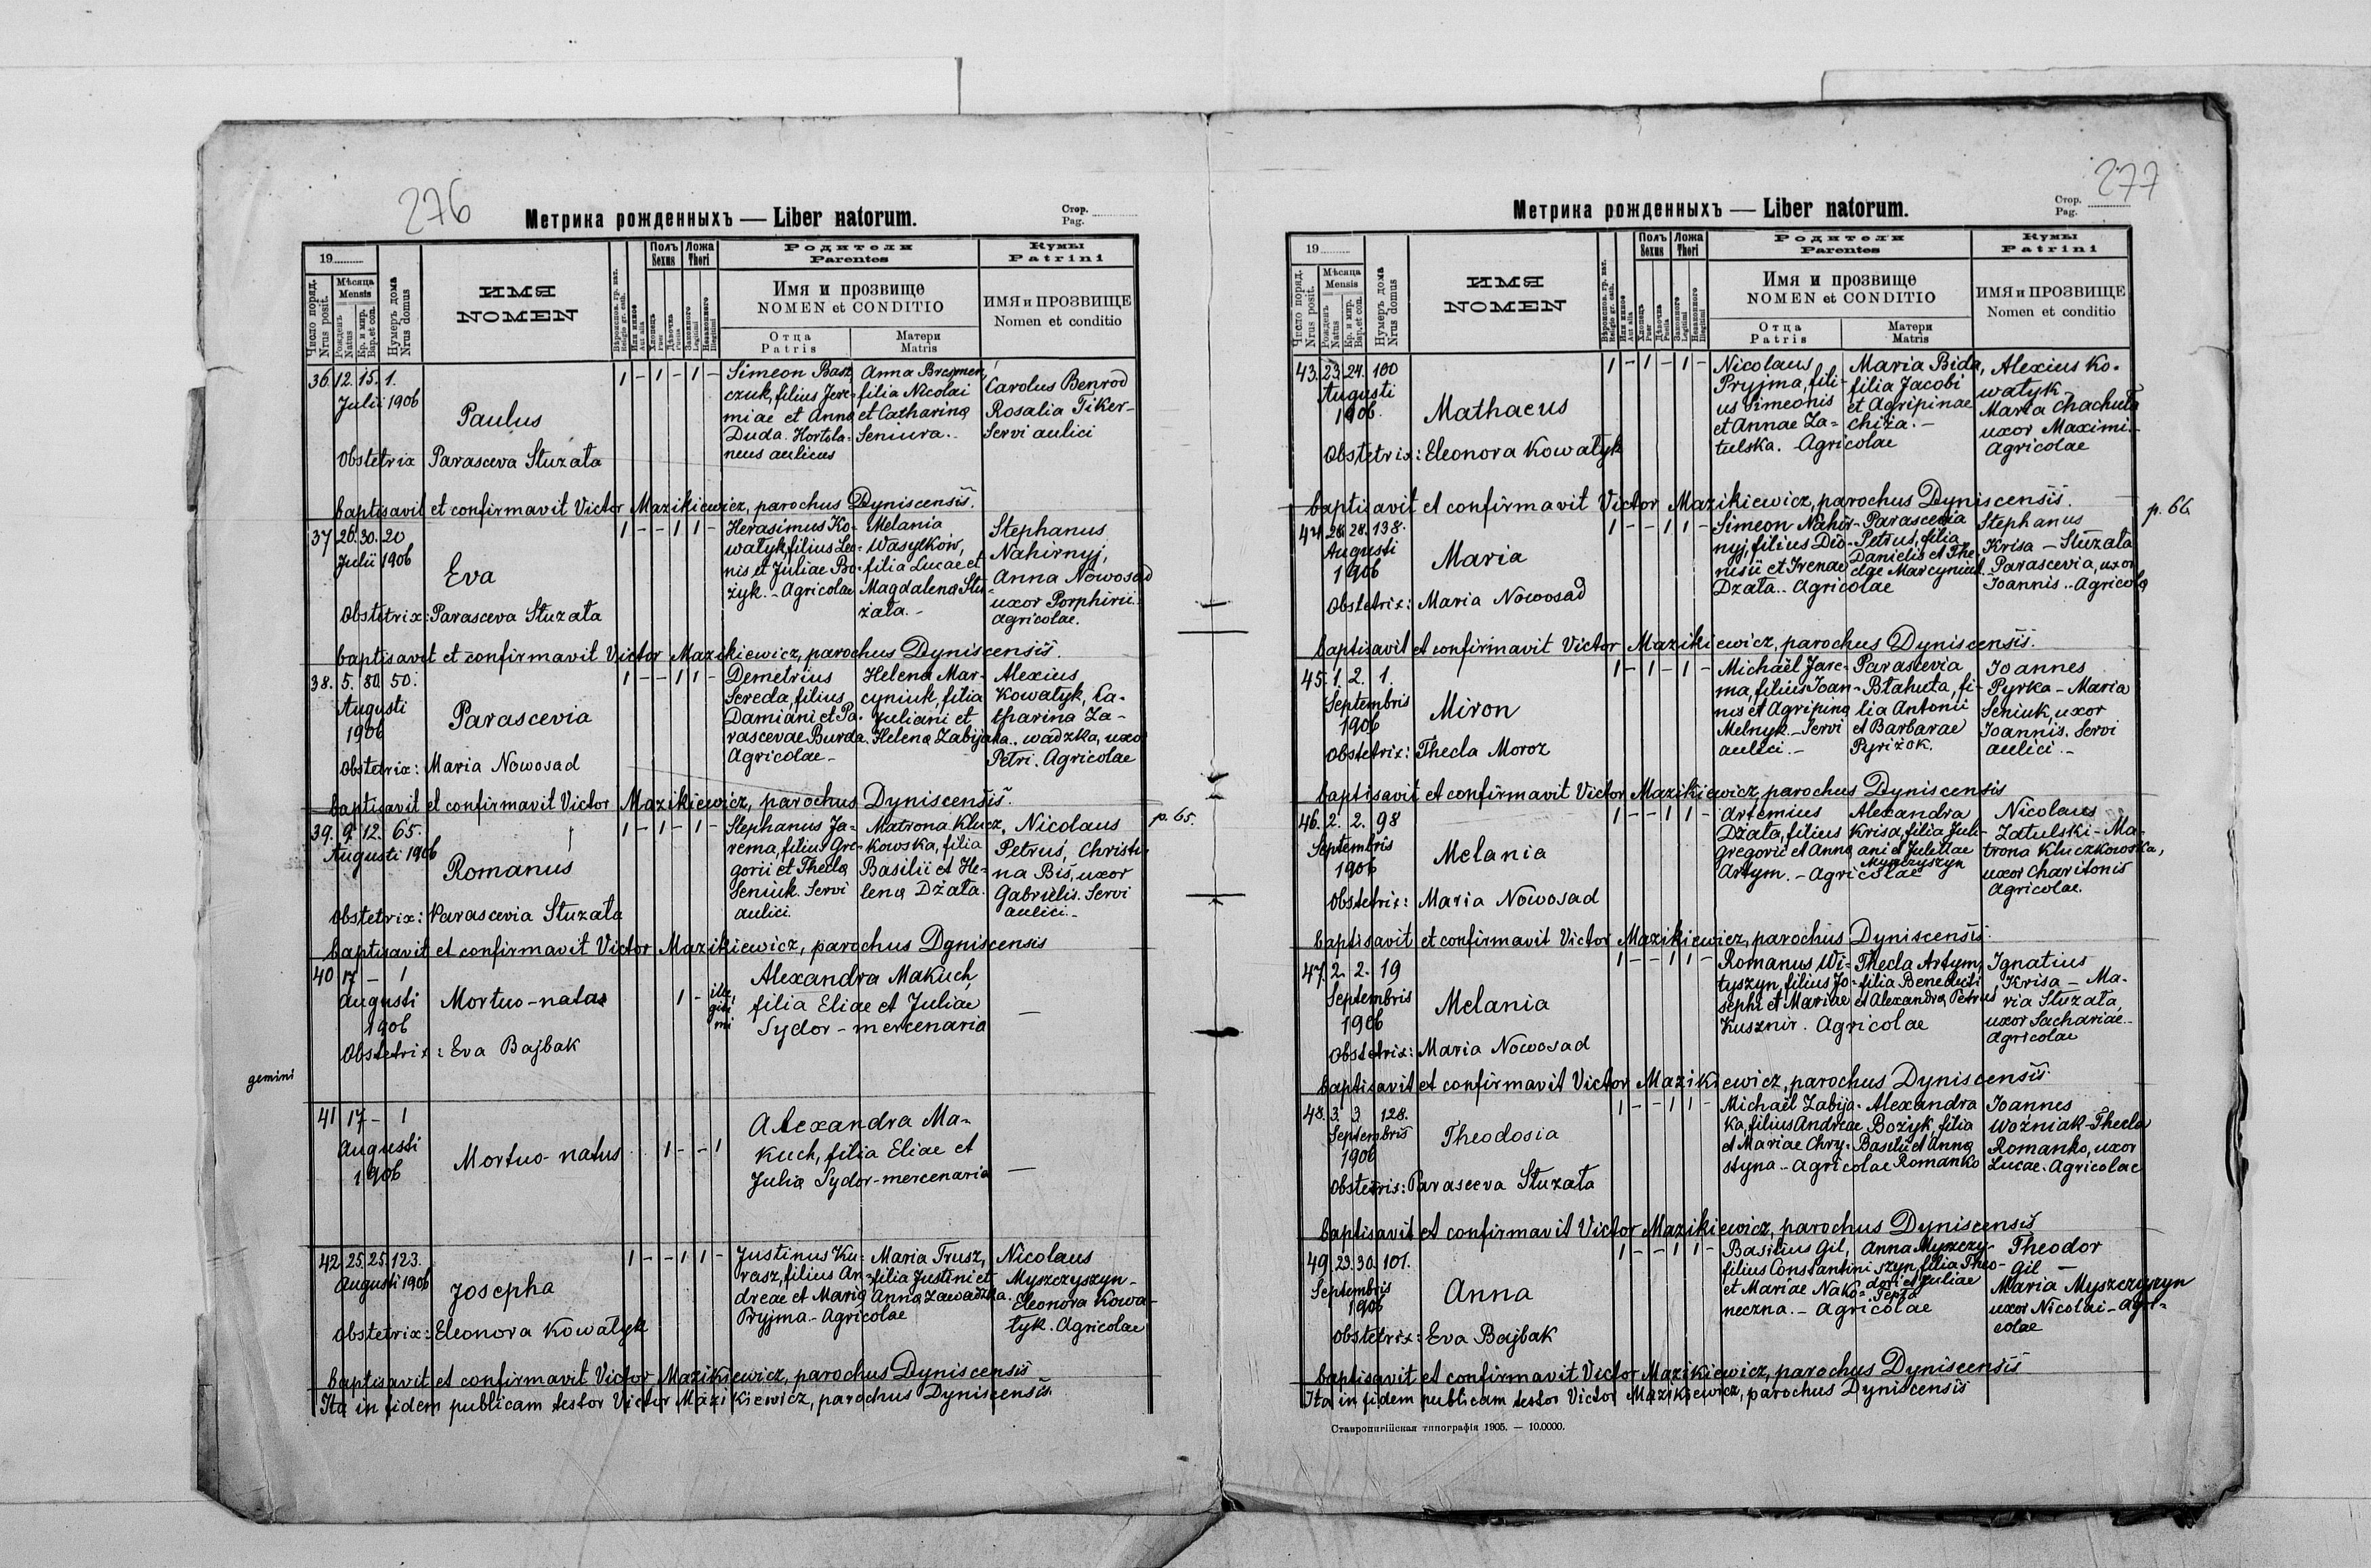 276
Метрика рожденныхъ — Liber natorum.
Стор.
Pag.
19
Число поряд.
Nrus posit.
Мѣсяца
Mensis
Рожденъ
Natus
Кр. и мир.
Bap. et con.
Нумеръ дома
Nrus domus
ИМЯ
NOMEN
Вѣроисповѣд. гр. кат.
Religio gr. cath.
Или инное
Aut alia
Полъ
Sexus
Хлопецъ
Puer
Дѣвочка
Puella
Ложа
Thori
Законного
Legitimi
Незаконного
Illegitimi
Родители
Parentes
Имя и прозвище
NOMEN et CONDITIO
Отца
Patris
Матери
Matris
Кумы
Patrini
ИМЯ и ПРОЗВИЩЕ
Nomen et conditio
36. 12. 15. 1.
Julii 1906
Paulus
1 - 1 - 1 -
Simeon Basz
czuk, filius Jere-
miae et Anna
Duda. Hortola-
neus aulicus
filia Nicolai
et Catharina
Seniura.
Carolus Benrod
Rosalia Tiker-
Servi aulici
Obstetrix Parasceva Stuzała
baptisavit et confirmavit Victor Mazikiewicz, parochus Dyniscensis.
37 26. 30. 20
Julii 1906
Eva
1 - - 1 1 -
Herasimus Ko-
wałyk, filius Leo-
nis et Juliae Bo-
zyk. - Agricolae
Melania
Wasylkow,
filia Lucae et
Magdalena Stu-
zała. -
Stephanus
Nahirnyj,
Anna Nowosad
uxor Porphirii.
agricolae.
Obstetrix: Parasceva Stuzała
baptisavit et confirmavit Victor Mazikiewicz, parochus Dyniscensis.
38. 5. 80 50.
Augusti
1906
Parascevia
1 - - 1 1 -
Demetrius
Sereda, filius
Damiani et Pa-
rascevae Burda.
Agricolae -
Helena Mar-
cyniuk, filia
Juliani et
Helena Zabijaka.
Alexius
Kowałyk, Ca-
tharina Za-
wadzka, uxor
Petri. Agricolae
Obstetrix: Maria Nowosad
baptisavit et confirmavit Victor Mazikiewicz, parochus Dyniscensis.
39. 9. 12. 65.
Augusti 1906
Romanus
1 - 1 - 1 -
Stephanus Ja-
rema, filius Gre-
gorii et Thecla
Seniuk. Servi
aulici.
Matrona Klucz
kowska, filia
Basilii et He-
lena Dżała.
Nicolaus
Petruś, Christi-
na Bis, uxor
Gabrielis. Servi
aulici. -
p. 65.
Obstetrix: Parascevia Stuzała
baptisavit et confirmavit Victor Mazikiewicz, parochus Dyniscensis
40 17 - 1
Augusti
1906
Mortuo-natas
1 - ille
giti
mi
Alexandra Makuch,
filia Eliae et Juliae
Sydor - mercenaria
—
Obstetrix: Eva Bajbak
gemini
41 17 - 1
Augusti
1906
Mortuo-natus
1 - - 1
Alexandra Ma-
kuch, filia Eliae et
Julia Sydor-mercenaria
—
42 25. 25. 123.
Augusti 1906
Josepha
1 - - 1 1 -
Justinus Ku-
rasz, filius An-
dreae et Maria
Pryjma - Agricolae
Maria Trusz,
filia Justini et
Anna Zawadzka.
Nicolaus
Myszczyszyn -
Eleonora Kowa-
łyk. Agricolae
Obstetrix: Eleonora Kowałyk
baptisavit et confirmavit Victor Mazikiewicz, parochus Dyniscensis
Ita in fidem publicam testor Victor Mazikiewicz, parochus Dyniscensis.
277
Метрика рожденныхъ — Liber natorum.
Стор.
Pag.
19
Число поряд.
Nrus posit.
Мѣсяца
Mensis
Рожденъ
Natus
Кр. и мир.
Bap. et con.
Нумеръ дома
Nrus domus
ИМЯ
NOMEN
Вѣроисповѣд. гр. кат.
Religio gr. cath.
Или инное
Aut alia
Полъ
Sexus
Хлопецъ
Puer
Дѣвочка
Puella
Ложа
Thori
Законного
Legitimi
Незаконного
Illegitimi
Родители
Parentes
Имя и прозвище
NOMEN et CONDITIO
Отца
Patris
Матери
Matris
Кумы
Patrini
ИМЯ и ПРОЗВИЩЕ
Nomen et conditio
43. 23. 24. 100
Augusti
1906.
Mathaeus
1 - 1 - 1 -
Nicolaus
Pryjma, fili-
us Simeonis
et Annae Za-
tulska. Agricolae
Maria Bida,
filia Jacobi
et Agripinae
Chiza. -
Alexius Ko-
wałyk
Maria Chachuła
uxor Maximi. -
Agricolae
Obstetrix: Eleonora Kowałyk
baptisavit et confirmavit Victor Mazikiewicz, parochus Dyniscensis.
p. 66
44 26. 28. 138.
Augusti
1906
Maria
1 - - 1 1 -
Simeon Nahir-
nyj, filius Dio-
nisii et Irenae
Dzała.. Agricolae
Parascevia
Petrus, filia
Danielis et The-
clae Marcyniuk.
Stephanus
Krisa - Stuzała
Parascevia, uxor
Joannis.. Agricola
Obstetrix: Maria Nowosad
baptisavit et confirmavit Victor Mazikiewicz, parochus Dyniscensis.
45. 1. 2. 1.
Septembris
1906
Miron
1 - 1 - 1 -
Michaël Jare-
ma, filius Joan-
nis et Agripina
Melnyk. - Servi
aulici. -
Parascevia
Błahuta, fi-
lia Antonii
et Barbarae
Pyriżok.
Joannes
Pyrka - Maria
Seniuk, uxor
Joannis. Servi
aulici. -
Obstetrix: Thecla Moroz
baptisavit et confirmavit Victor Mazikiewicz, parochus Dyniscensis
46. 2. 2. 98
Septembris
1906
Melania
1 - - 1 1 -
Artemius
Dżała, filius
Gregorii et Anna
Artym. - Agricolae
Alexandra
Krisa, filia Juli-
ani et Julittae
Myszczyszyn
Nicolaus
Zatulski - Ma-
trona Kluczkowska,
uxor Charitonis
Agricolae.
Obstetrix: Maria Nowosad
baptisavit et confirmavit Victor Mazikiewicz, parochus Dyniscensis.
47. 2. 2. 19
Septembris
1906
Melania
1 - - 1 1 -
Romanus Wi-
tyszyn, filius Jo-
sephi et Mariae
Kusznir. Agricolae
Thecla Artym,
filia Benedicti
et Alexandra Petrus
Ignatius
Krisa - Ma-
ria Stuzała,
uxor Sachariae.
Agricolae
Obstetrix: Maria Nowosad
baptisavit et confirmavit Victor Mazikiewicz, parochus Dyniscensis
48. 3. 3 128.
Septembris
1906
Theodosia
1 - - 1 1 -
Michaël Zabija-
ka, filius Andreae
et Mariae Chry-
styna - Agricolae
Alexandra
Bożyk, filia
Basilii et Anna
Romanko
Joannes
Woźniak - Thecla
Romanko, uxor
Lucae. Agricolae
Obstetrix: Parasceva Stuzała
baptisavit et confirmavit Victor Mazikiewicz, parochus Dyniscensis
49. 23. 30. 101.
Septembris
1906
Anna
1 - - 1 1 -
Basilius Gil,
filius Constantini
et Mariae Nako-
neczna. - Agricolae
Anna Myszczy-
szyn, filia Theo-
dori et Juliae
Theodor
Gil -
Maria Myszczyszyn
uxor Nicolai - Agri-
colae
Obstetrix: Eva Bajbak
baptisavit et confirmavit Victor Mazikiewicz, parochus Dyniscensis
Ita in fidem publicam testor Victor Mazikiewicz, parochus Dyniscensis
Ставропигійская типографія 1905. — 10.0000.